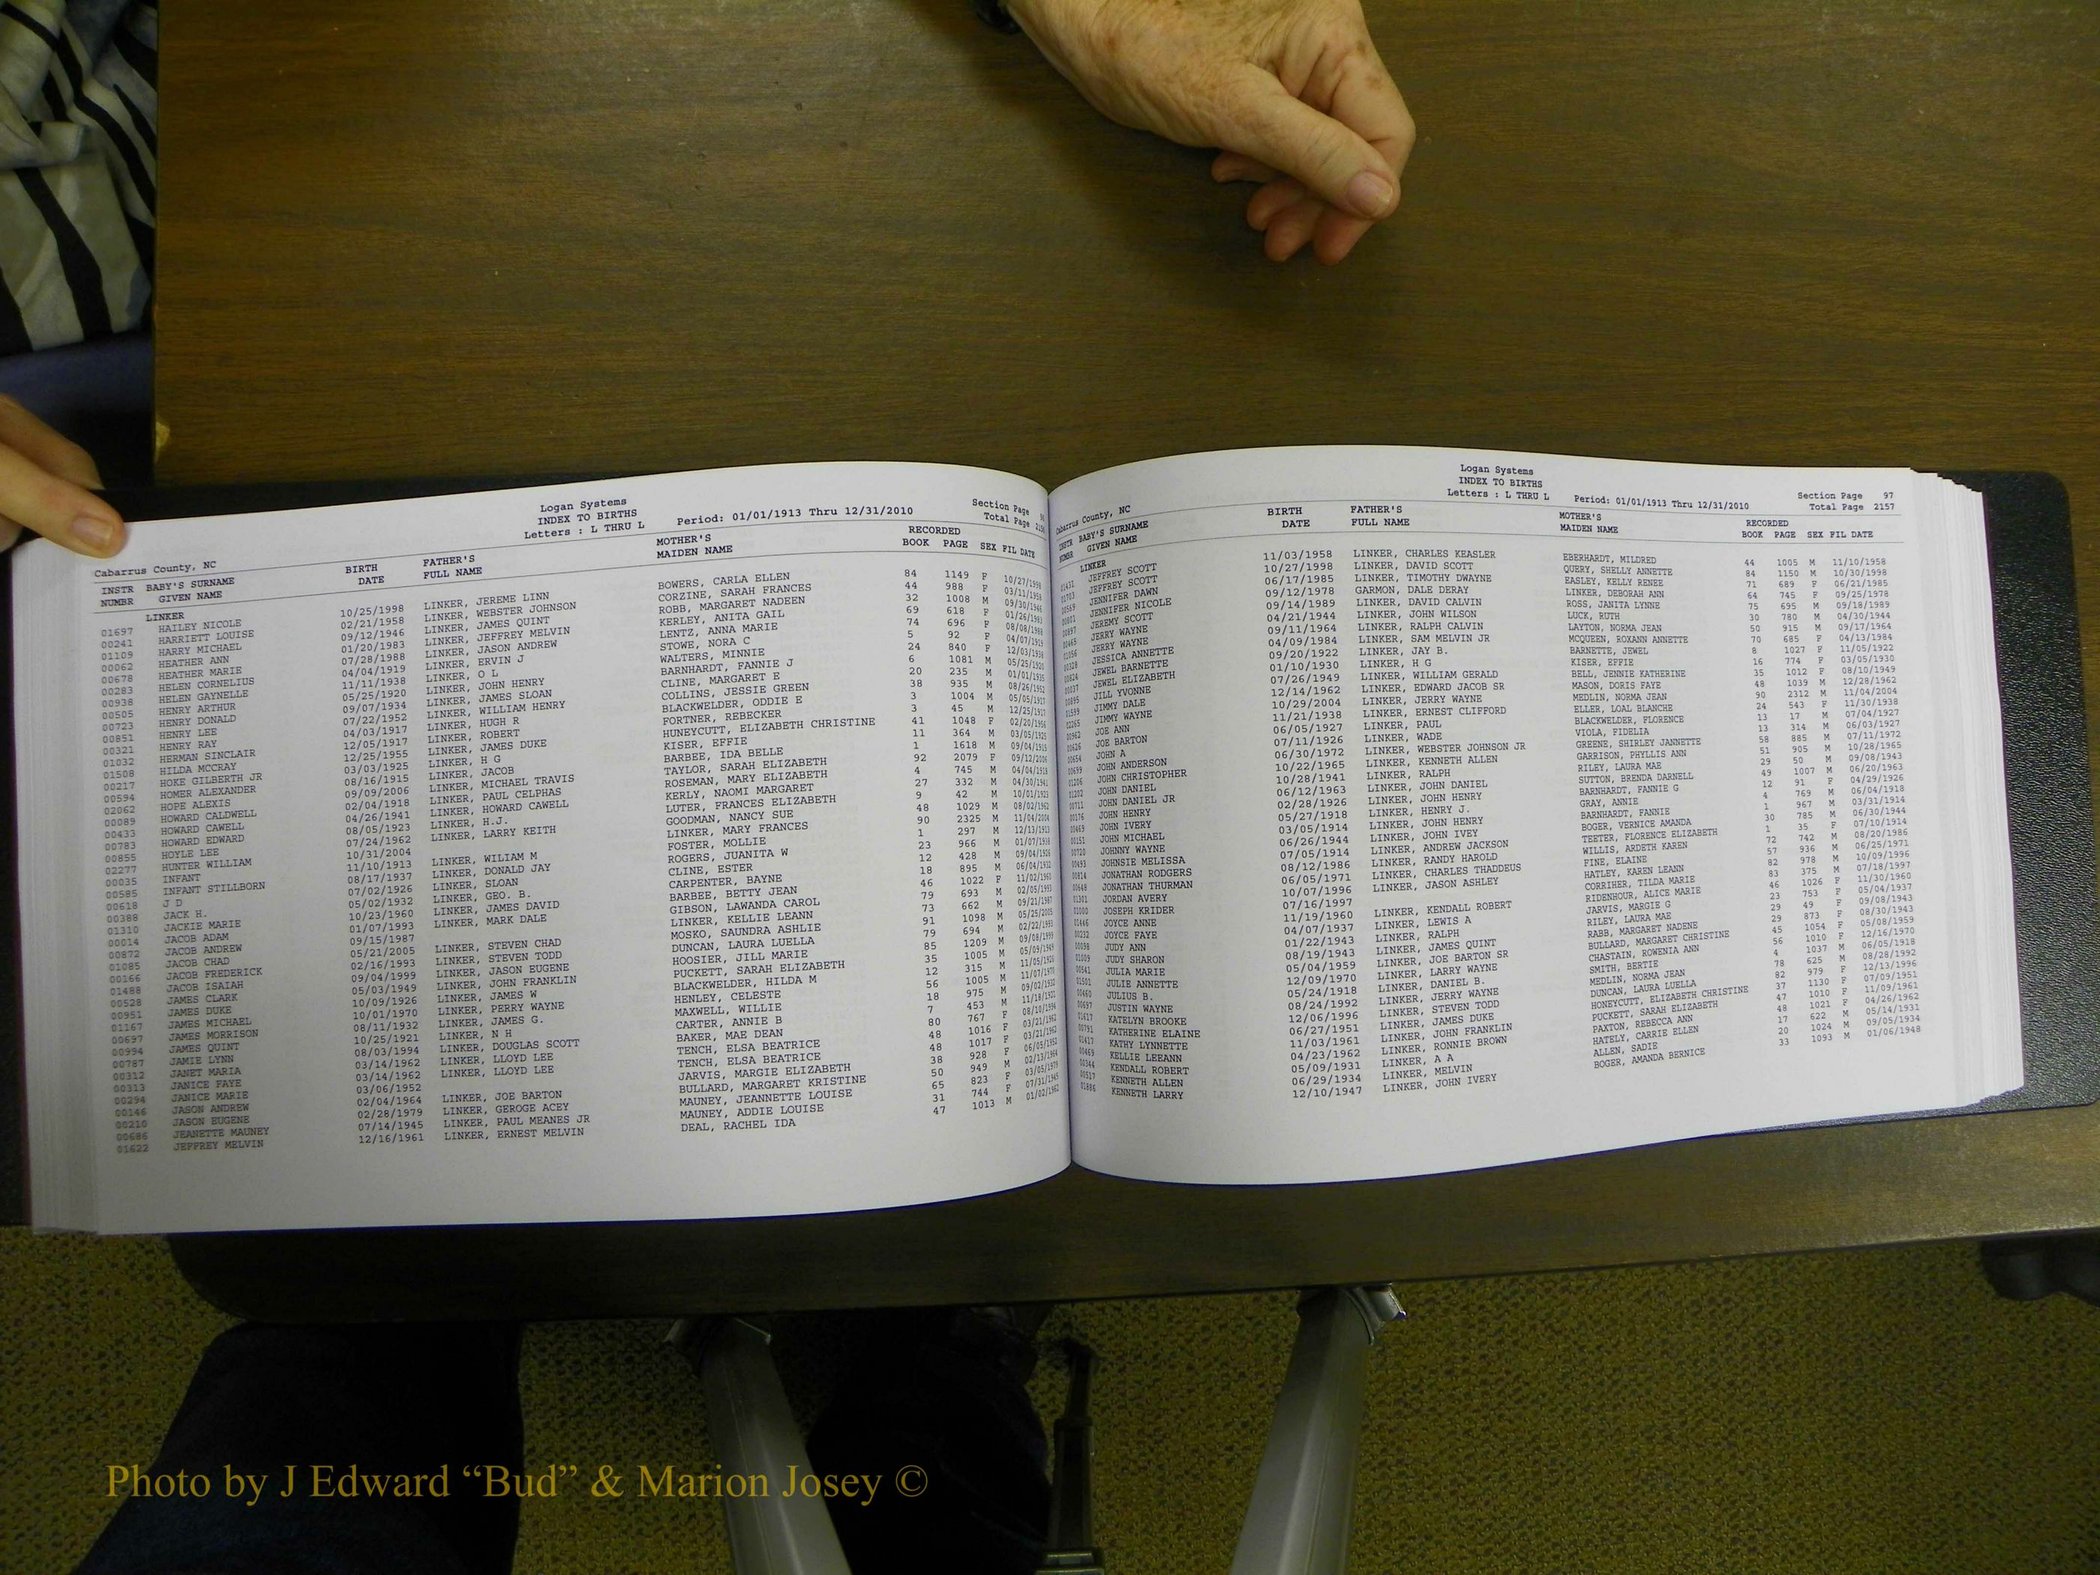 Logan Systems
INDEX TO BIRTHS
Cabarrus County, NC Letters : L THRU L Period: 01/01/1913 Thru 12/31/2010 Section Page Total Page
INSTR NUMBR BABY'S SURNAME GIVEN NAME BIRTH DATE FATHER'S FULL NAME MOTHER'S MAIDEN NAME RECORDED BOOK PAGE SEX FIL DATE
LINKER
01697 HAILEY NICOLE 10/25/1998 LINKER, JEREME LINN BOWERS, CARLA ELLEN 84 1149 F 10/27/1998
00241 HARRIETT LOUISE 02/21/1958 LINKER, WEBSTER JOHNSON CORZINE, SARAH FRANCES 44 988 F 03/11/1958
01109 HARRY MICHAEL 09/12/1946 LINKER, JAMES QUINT ROBB, MARGARET NADEEN 32 1008 M 09/30/1946
00062 HEATHER ANN 01/20/1983 LINKER, JEFFREY MELVIN KERLEY, ANITA GAIL 69 618 F 01/26/1983
00678 HEATHER MARIE 07/28/1988 LINKER, JASON ANDREW LENTZ, ANNA MARIE 74 696 F 08/08/1988
00283 HELEN CORNELIUS 04/04/1919 LINKER, ERVIN J STOWE, NORA C 5 92 F 04/07/1919
00938 HELEN GAYNELLE 11/11/1938 LINKER, O L WALTERS, MINNIE 24 840 F 12/03/1938
00505 HENRY ARTHUR 05/25/1920 LINKER, JOHN HENRY BARNHARDT, FANNIE J 6 1081 M 05/25/1920
00723 HENRY DONALD 09/07/1934 LINKER, JAMES SLOAN CLINE, MARGARET E 20 235 M 01/01/1935
00851 HENRY LEE 07/22/1952 LINKER, WILLIAM HENRY COLLINS, JESSIE GREEN 38 935 M 08/26/1952
00321 HENRY RAY 04/03/1917 LINKER, HUGH R BLACKWELDER, ODDIE E 3 1004 M 05/05/1917
01032 HERMAN SINCLAIR 12/05/1917 LINKER, ROBERT FORTNER, REBECKER 3 45 M 12/25/1917
01508 HILDA MCCRAY 12/05/1955 LINKER, JAMES DUKE HUNEYCUTT, ELIZABETH CHRISTINE 41 1048 F 02/20/1956
00217 HOKE GILBERTH JR 03/03/1925 LINKER, H G KISER, EFFIE 11 364 M 03/05/1925
00594 HOMER ALEXANDER 08/16/1915 LINKER, JACOB BARBEE, IDA BELLE 1 1618 M
02062 HOPE ALEXIS 09/09/2006 LINKER, MICHAEL TRAVIS TAYLOR, SARAH ELIZABETH 92 2079 F 09/12/2006
00089 HOWARD CALDWELL 02/04/1918 LINKER, PAUL CELPHAS ROSEMAN, MARY ELIZABETH 4 745 M 04/04/1918
00433 HOWARD CAWELL 04/26/1941 LINKER, HOWARD CAWELL KERLY, NAOMI MARGARET 27 332 M 04/30/1941
00783 HOWARD EDWARD 08/05/1923 LINKER, H.J. LUTER, FRANCES ELIZABETH 9 42 M 10/01/1923
00855 HOYLE LEE 07/24/1962 LINKER, LARRY KEITH GOODMAN, NANCY SUE 48 1029 M 08/02/1962
02277 HUNTER WILLIAM 10/31/2004 LINKER, MARY FRANCES 90 2325 M 11/04/2004
00035 INFANT 11/10/1913 LINKER, WILIAM M FOSTER, MOLLIE 1 297 M 12/13/1913
00585 INFANT STILLBORN 08/17/1937 LINKER, DONALD JAY ROGERS, JUANITA W 23 966 M 01/07/1938
00618 J D 07/02/1926 LINKER, SLOAN CLINE, ESTER 12 428 M 09/04/1926
00388 JACK H. 05/02/1932 LINKER, GEO. B. CARPENTER, BAYNE 18 895 M 06/04/1932
01310 JACKIE MARIE 10/23/1960 LINKER, JAMES DAVID BARBEE, BETTY JEAN 46 1022 F
00014 JACOB ADAM 01/07/1993 LINKER, MARK DALE GIBSON, LAWANDA CAROL 79 693 M 02/05/1993
00872 JACOB ANDREW 09/15/1987 LINKER, KELLIE LEANN 73 662 M 09/21/1987
01085 JACOB CHAD 05/21/2005 LINKER, STEVEN CHAD MOSKO, SAUNDRA ASHLIE 91 1098 M 05/25/2005
00166 JACOB FREDERICK 02/16/1993 LINKER, STEVEN TODD DUNCAN, LAURA LUELLA 79 694 M 02/22/1993
01488 JACOB ISAIAH 09/04/1999 LINKER, JASON EUGENE HOOSIER, JILL MARIE 85 1209 M 09/08/1999
00528 JAMES CLARK 05/03/1949 LINKER, JOHN FRANKLIN PUCKETT, SARAH ELIZABETH 35 1005 M 05/09/1949
00951 JAMES DUKE 10/09/1926 LINKER, JAMES W BLACKWELDER, HILDA M 12 315 M 11/05/1926
01167 JAMES MICHAEL 10/01/1970 LINKER, PERRY WAYNE HENLEY, CELESTE 56 1005 M 11/07/1970
00697 JAMES MORRISON 08/11/1932 LINKER, JAMES G. MAXWELL, WILLIE 18 975 M 09/02/1932
00994 JAMES QUINT 10/25/1921 LINKER, N H CARTER, ANNIE B 7 453 M 11/18/1921
00787 JAMIE LYNN 08/03/1994 LINKER, DOUGLAS SCOTT BAKER, MAE DEAN 80 767 F 08/10/1994
00312 JANET MARIA 03/14/1962 LINKER, LLOYD LEE TENCH, ELSA BEATRICE 48 1016 F 03/21/1962
00313 JANICE FAYE 03/14/1962 LINKER, LLOYD LEE TENCH, ELSA BEATRICE 48 1017 F 03/21/1962
00294 JANICE MARIE 03/06/1952 JARVIS, MARGIE ELIZABETH 38 928 F 06/05/1952
00146 JASON ANDREW 02/04/1964 LINKER, JOE BARTON BULLARD, MARGARET KRISTINE 50 949 M 02/13/1964
00210 JASON EUGENE 02/28/1979 LINKER, GEROGE ACEY MAUNEY, JEANNETTE LOUISE 65 823 03/05/1979
00686 JEANETTE MAUNEY 07/14/1945 LINKER, PAUL MEANES JR MAUNEY, ADDIE LOUISE 31 744 F 07/31/1945
01622 JEFFREY MELVIN 12/16/1961 LINKER, ERNEST MELVIN DEAL, RACHEL IDA 47 1013 M 01/02/1962
Logan Systems
INDEX TO BIRTHS
Cabarrus County, NC Letters : L THRU L Period: 01/01/1913 Thru 12/31/2010 Section Page 97 Total Page 2157
INSTR NUMBR BABY'S SURNAME GIVEN NAME BIRTH DATE FATHER'S FULL NAME MOTHER'S MAIDEN NAME RECORDED BOOK PAGE SEX FIL DATE
LINKER
01431 JEFFREY SCOTT 11/03/1958 LINKER, CHARLES KEASLER EBERHARDT, MILDRED 44 1005 M 11/10/1958
01703 JEFFREY SCOTT 10/27/1998 LINKER, DAVID SCOTT QUERY, SHELLY ANNETTE 84 1150 M 10/30/1998
00569 JENNIFER DAWN 06/17/1985 LINKER, TIMOTHY DWAYNE EASLEY, KELLY RENEE 71 689 F 06/21/1985
00801 JENNIFER NICOLE 09/12/1978 GARMON, DALE DERAY LINKER, DEBORAH ANN 64 745 F 09/25/1978
00897 JEREMY SCOTT 09/14/1989 LINKER, DAVID CALVIN ROSS, JANITA LYNNE 75 695 M 09/18/1989
00465 JERRY WAYNE 04/21/1944 LINKER, JOHN WILSON LUCK, RUTH 30 780 M 04/30/1944
01056 JERRY WAYNE 09/11/1964 LINKER, RALPH CALVIN LAYTON, NORMA JEAN 50 915 M 09/17/1964
00328 JESSICA ANNETTE 04/09/1984 LINKER, SAM MELVIN JR MCQUEEN, ROXANN ANNETTE 70 685 F 04/13/1984
00824 JEWEL BARNETTE 09/20/1922 LINKER, JAY B. BARNETTE, JEWEL 8 1027 F 11/05/1922
00037 JEWEL ELIZABETH 01/10/1930 LINKER, H G KISER, EFFIE 16 774 F 03/05/1930
00895 JILL YVONNE 07/26/1949 LINKER, WILLIAM GERALD BELL, JENNIE KATHERINE 35 1012 F 08/10/1949
01599 JIMMY DALE 12/14/1962 LINKER, EDWARD JACOB SR MASON, DORIS FAYE 48 1039 M 12/28/1962
02265 JIMMY WAYNE 10/29/2004 LINKER, JERRY WAYNE MEDLIN, NORMA JEAN 90 2312 M 11/04/2004
00962 JOE ANN 11/21/1938 LINKER, ERNEST CLIFFORD ELLER, LOAL BLANCHE 24 543 F 11/30/1938
00626 JOE BARTON 06/05/1927 LINKER, PAUL BLACKWELDER, FLORENCE 13 17 M 07/04/1927
00654 JOHN A 07/11/1926 LINKER, WADE VIOLA, FIDELIA 13 314 M 06/03/1927
00699 JOHN ANDERSON 06/30/1972 LINKER, WEBSTER JOHNSON JR GREENE, SHIRLEY JANNETTE 58 885 M 07/11/1972
01206 JOHN CHRISTOPHER 10/22/1965 LINKER, KENNETH ALLEN GARRISON, PHYLLIS ANN 51 905 M 10/28/1965
01202 JOHN DANIEL 10/28/1941 LINKER, RALPH RILEY, LAURA MAE 29 50 M 09/08/1943
00711 JOHN DANIEL JR 06/12/1963 LINKER, JOHN DANIEL SUTTON, BRENDA DARNELL 49 1007 M 06/20/1963
00176 JOHN HENRY 02/28/1926 LINKER, JOHN HENRY BARNHARDT, FANNIE G 12 91 F 04/29/1926
00469 JOHN IVERY 05/27/1918 LINKER, HENRY J. GRAY, ANNIE 4 769 M 06/04/1918
00151 JOHN MICHAEL 03/05/1914 LINKER, JOHN HENRY BARNHARDT, FANNIE 1 967 M 03/31/1914
00720 JOHNNY WAYNE 06/26/1944 LINKER, JOHN IVEY BOGER, VERNICE AMANDA 30 785 M 06/30/1944
00493 JOHNSIE MELISSA 07/05/1914 LINKER, ANDREW JACKSON TEETER, FLORENCE ELIZABETH 1 35 F 07/10/1914
00814 JONATHAN RODGERS 08/12/1986 LINKER, RANDY HAROLD WILLIS, ARDETH KAREN 72 742 M 08/20/1986
00648 JONATHAN THURMAN 06/05/1971 LINKER, CHARLES THADDEUS FINE, ELAINE 57 936 M 06/25/1971
01301 JORDAN AVERY 10/07/1996 LINKER, JASON ASHLEY HATLEY, KAREN LEANN 82 978 M 10/09/1996
01000 JOSEPH KRIDER 07/16/1997 CORRIHER, TILDA MARIE 83 375 M 07/18/1997
01446 JOYCE ANNE 11/19/1960 LINKER, KENDALL ROBERT RIDENHOUR, ALICE MARIE 46 1026 F 11/30/1960
00232 JOYCE FAYE 04/07/1937 LINKER, LEWIS A JARVIS, MARGIE G 23 753 F 05/04/1937
00098 JUDY ANN 01/22/1943 LINKER, RALPH RILEY, LAURA MAE 29 49 F 09/08/1943
01009 JUDY SHARON 08/19/1943 LINKER, JAMES QUINT RABB, MARGARET NADENE 29 873 F 08/30/1943
00541 JULIA MARIE 05/04/1959 LINKER, JOE BARTON SR BULLARD, MARGARET CHRISTINE 45 1054 F 05/08/1959
01501 JULIE ANNETTE 12/09/1970 LINKER, LARRY WAYNE CHASTAIN, ROWENIA ANN 56 1010 F 12/16/1970
00460 JULIUS B. 05/24/1918 LINKER, DANIEL B. SMITH, BERTIE 4 1037 M 06/05/1918
00697 JUSTIN WAYNE 08/24/1992 LINKER, JERRY WAYNE MEDLIN, NORMA JEAN 78 625 M 08/28/1992
01617 KATELYN BROOKE 12/06/1996 LINKER, STEVEN TODD DUNCAN, LAURA LUELLA 82 979 F 12/13/1996
00791 KATHERINE ELAINE 06/27/1951 LINKER, JAMES DUKE HONEYCUTT, ELIZABETH CHRISTINE 37 1130 F 07/09/1951
01417 KATHY LYNNETTE 11/03/1961 LINKER, JOHN FRANKLIN PUCKETT, SARAH ELIZABETH 47 1010 F 11/09/1961
00469 KELLIE LEEANN 04/23/1962 LINKER, RONNIE BROWN PAXTON, REBECCA ANN 48 1021 F 04/26/1962
00344 KENDALL ROBERT 05/09/1931 LINKER, A A HATELY, CARRIE ELLEN 17 622 M 05/14/1931
00517 KENNETH ALLEN 06/29/1934 LINKER, MELVIN ALLEN, SADIE 20 1024 M 09/05/1934
01886 KENNETH LARRY 12/10/1947 LINKER, JOHN IVERY BOGER, AMANDA BERNICE 33 1093 M 01/06/1948
Photo by J Edward “Bud” & Marion Josey ©